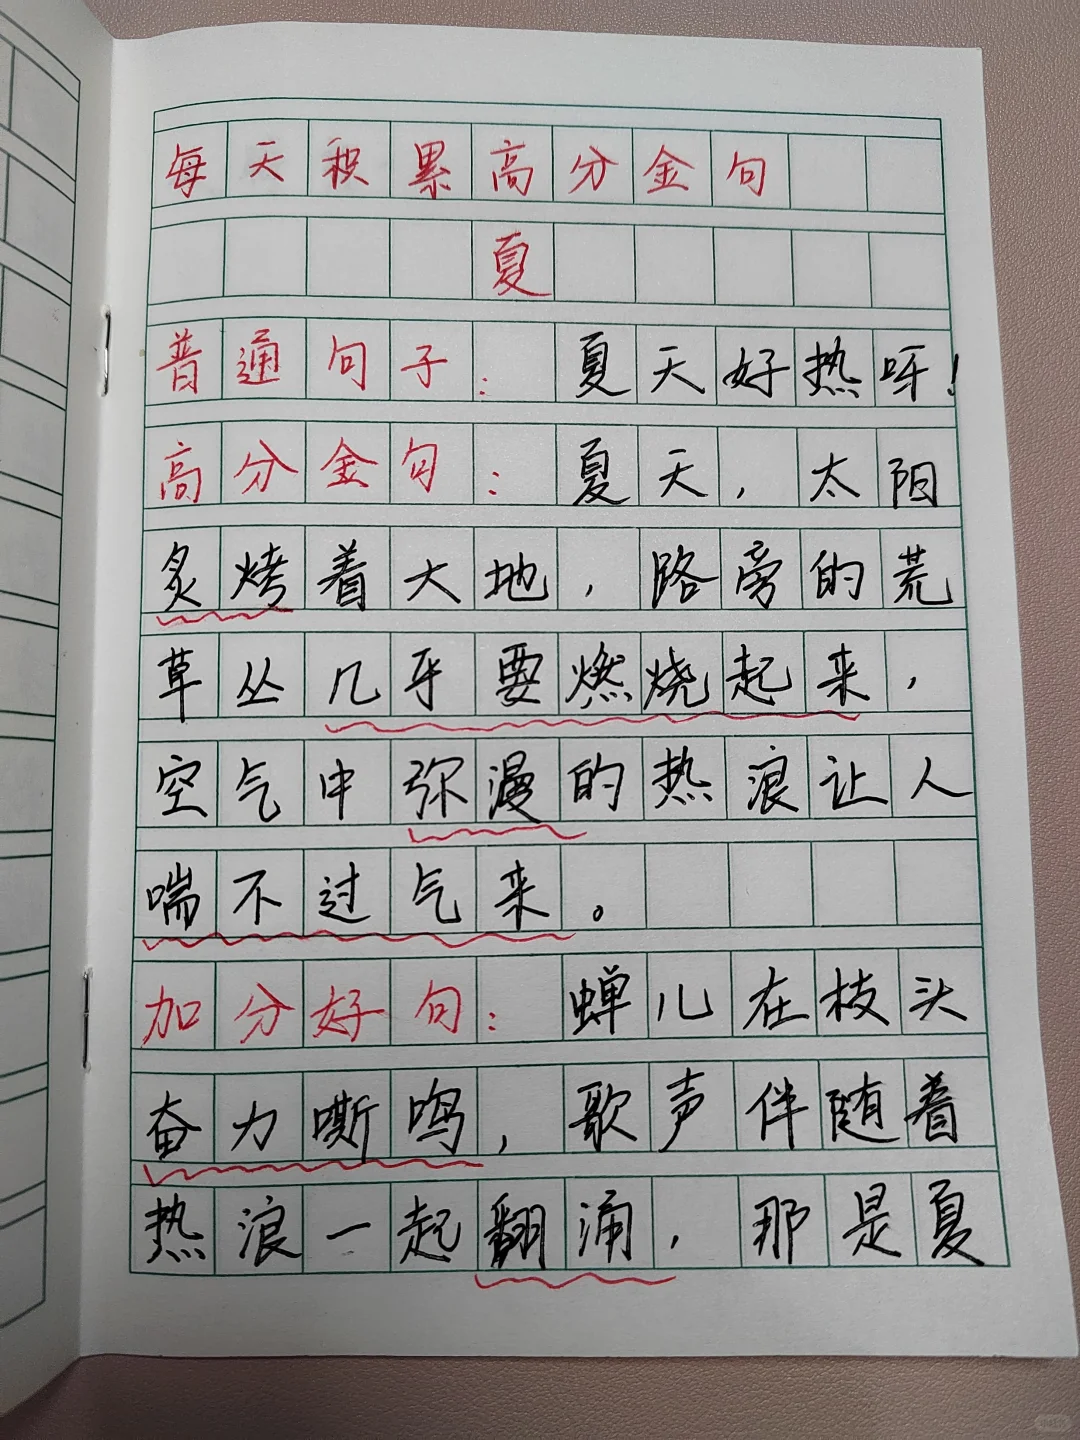 每天积累高分金句
夏
普通句子：夏天好热呀！
高分金句：夏天，太阳
炙烤着大地，路旁的荒
草丛几乎要燃烧起来，
空气中弥漫的热浪让人
喘不过气来。
加分好句：蝉儿在枝头
奋力嘶鸣，歌声伴随着
热浪一起翻涌，那是夏